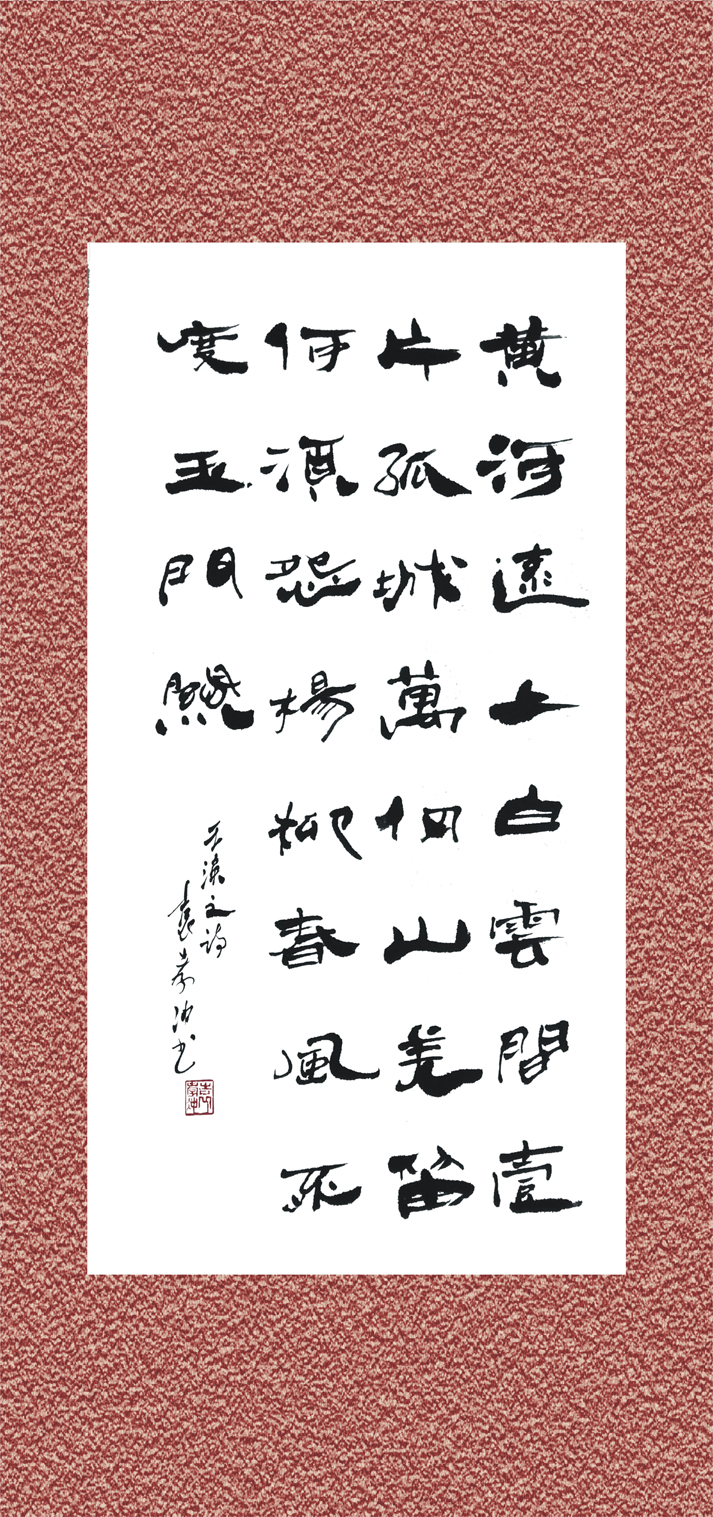 黄河遠上白雲間壹
片孤城萬仞山羌笛
何須怨楊柳春風不
度玉門關
王渙之詩
袁書